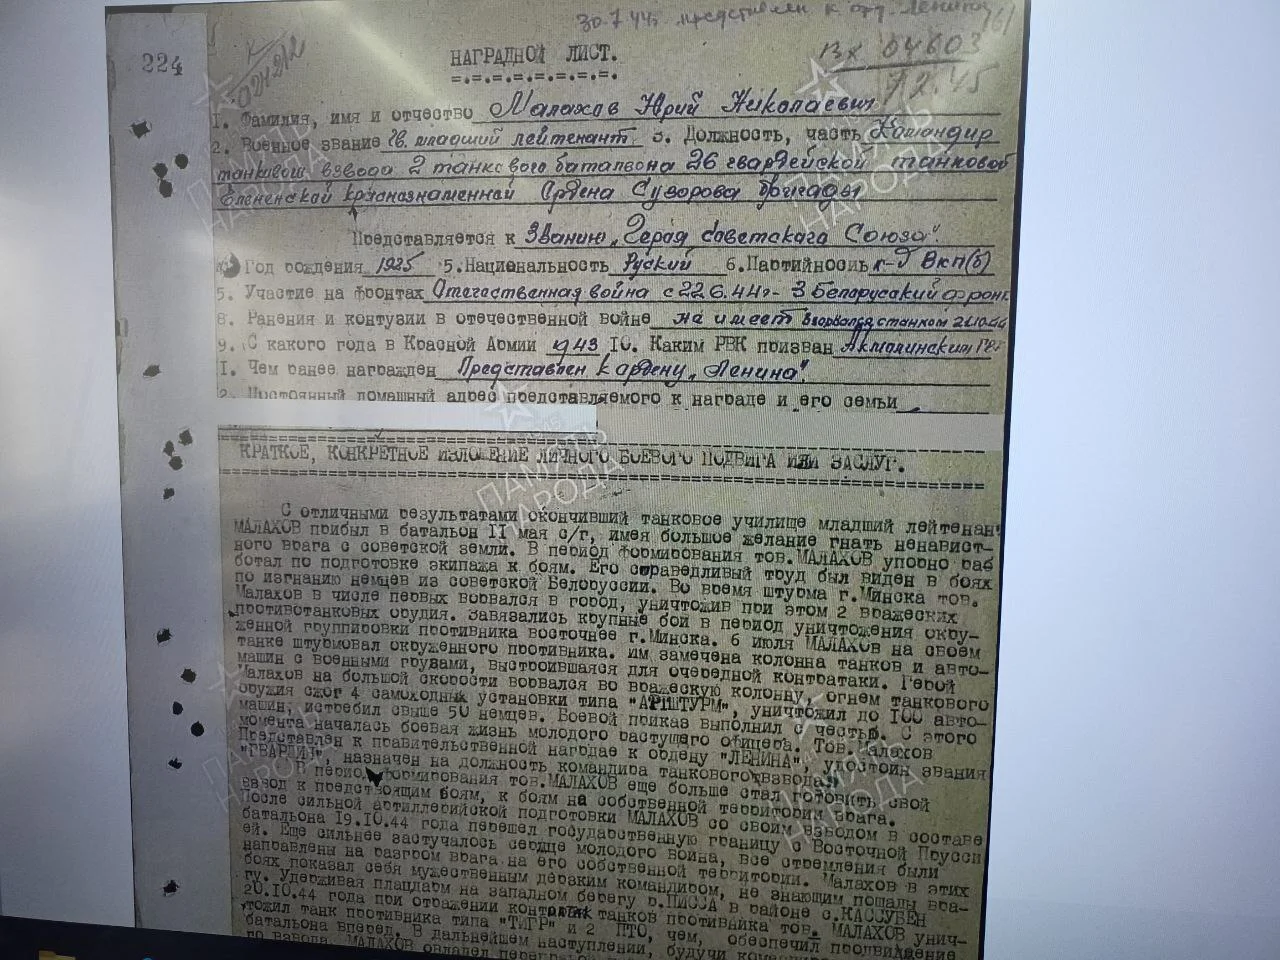 30.7.44г. представлен к орд. Ленина
224
НАГРАДНОЙ ЛИСТ.
Вх 04603
1. Фамилия, имя и отчество Малахов Юрий Николаевич
2. Военное звание Гв. младший лейтенант 3. Должность, часть Командир
танкового взвода 2 танкового баталиона 26 гвардейской танковой
Ельненской краснознаменной Ордена Суворова бригады
Представляется к Званию „Герой Советского Союза".
Год рождения 1925 5.Национальность Руский 6.Партийность к-т ВКП(б)
5. Участие на фронтах Отечественная война с 22.6.44г - 3 Белорусский фронт
8. Ранения и контузии в отечественной войне не имеет
9. С какого года в Красной Армии 1943 10. Каким РВК призван Акмолинским
1. Чем ранее награжден Представлен к ордену „Ленина".
2. Постоянный домашный адрес представляемого к награде и его семьи
КРАТКОЕ, КОНКРЕТНОЕ ИЗЛОЖЕНИЕ ЛИЧНОГО БОЕВОГО ПОДВИГА ИЛИ ЗАСЛУГ.
С отличными результатами окончивший танковое училище младший лейтенант
МАЛАХОВ прибыл в батальон 11 мая с/г, имея большое желание гнать ненавист-
ного врага с советской земли. В период формирования тов. МАЛАХОВ упорно раб
ботал по подготовке экипажа к боям. Его справедливый труд был виден в боях
по изгнанию немцев из советской Белоруссии. Во время штурма г.Минска тов.
Малахов в числе первых ворвался в город, уничтожив при этом 2 вражеских
противотанковых орудия. Завязались крупные бои в период уничтожения окру-
женной группировки противника восточнее г.Минска. 6 июля МАЛАХОВ на своем
танке штурмовал окруженного противника. им замечена колонна танков и авто-
машин с военными грузами, выстроившаяся для очередной контратаки. Герой
Малахов на большой скорости ворвался во вражескую колонну, огнем танкового
орудия сжог 4 самоходных установки типа "АРТШТУРМ", уничтожил до 100 авто-
машин, истребил свыше 50 немцев. Боевой приказ выполнил с честью. С этого
момента началась боевая жизнь молодого растущего офицера. Тов.Малахов
Представлен к правительственной награде к ордену "ЛЕНИНА", удостоин звания
"ГВАРДИИ", назначен на должность командира танкового взвода.
В период формирования тов.МАЛАХОВ еще больше стал готовить свой
взвод к предстоящим боям, к боям на собственной территории врага.
После сильной артиллерийской подготовки МАЛАХОВ со своим взводом в составе
батальона 19.10.44 года перешел государственную границу с Восточной Прусси
ей. Еще сильнее застучалось сердце молодого воина, все стремления были
направлены на разгром врага на его собственной территории. Малахов в этих
боях показал себя мужественным дерзким командиром, не знающим пощады вра-
гу. Удерживая плацдарм на западном берегу р.ПИССА в районе с.КАССУБЕН
20.10.44 года при отражении контратак танков противника тов. МАЛАХОВ унич-
тожил танк противника типа "ТИГР" и 2 ПТО, чем, обеспечил продвижение
батальона вперед. В дальнейшем наступлении, будучи
го взвода, МАЛАХОВ овладел